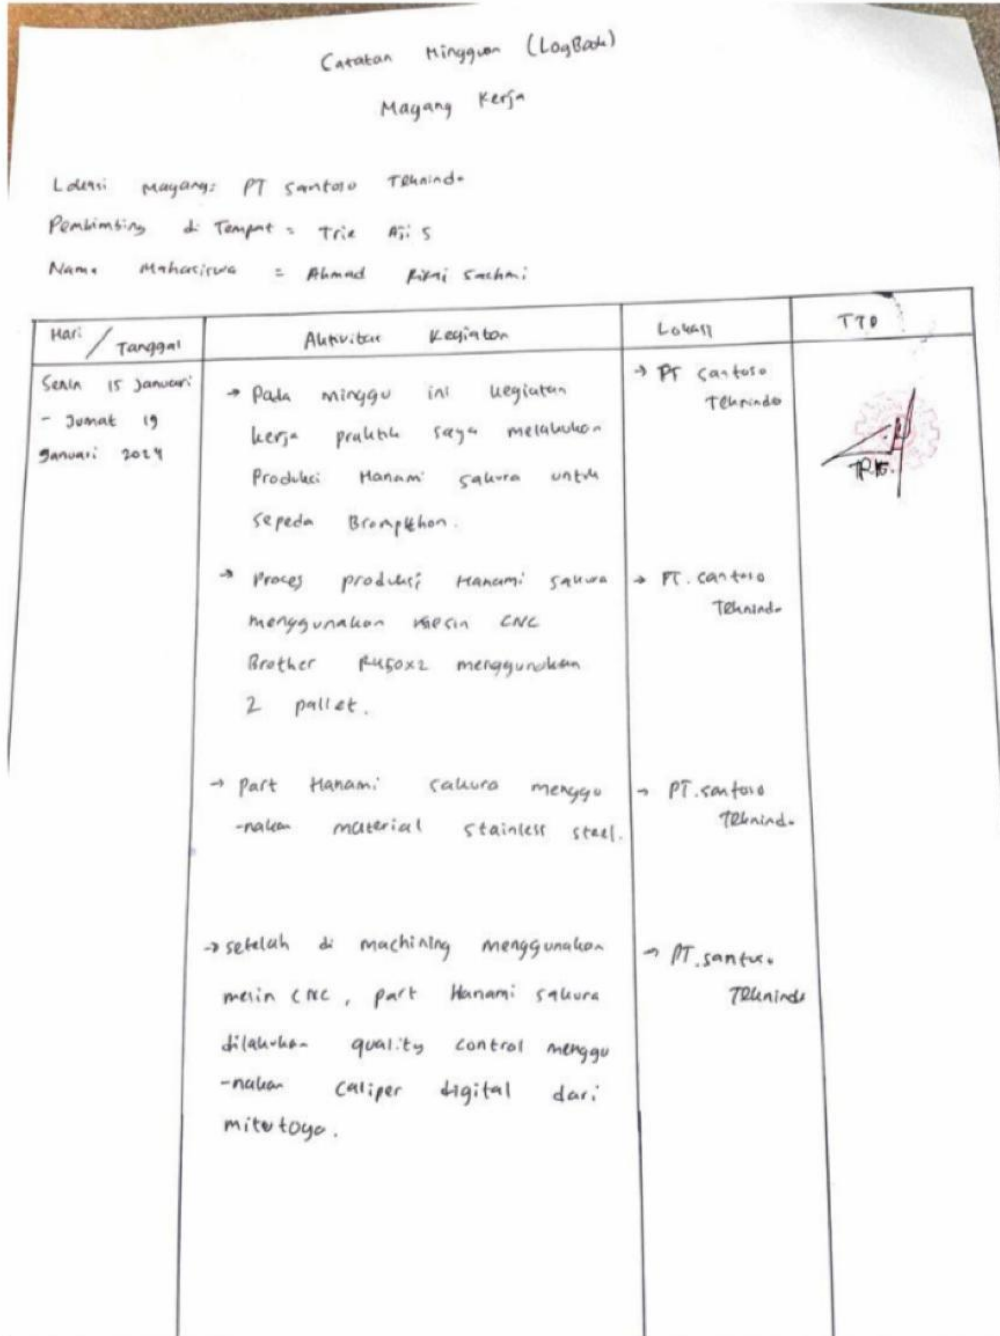 Catatan Mingguan (LogBook)
Magang Kerja
Lokasi Magang: PT Santoso Teknindo
Pembimbing di Tempat = Trie Aji S
Nama Mahasiswa = Ahmad Sachmi
Hari / Tanggal
Aktivitas Kegiatan
Lokasi
TTD
Senin 15 Januari
- Jumat 19
Januari 2024
→ Pada minggu ini kegiatan
kerja praktik saya melakukan
Produksi Hanami sakura untuk
sepeda
→ PT Santoso
Teknindo
→ Proses produksi Hanami sakura
menggunakan mesin CNC
Brother R450x2 menggunakan
2 pallet.
→ PT. Santoso
Teknindo
→ Part Hanami sakura menggu
-nakan material stainless steel.
→ PT. Santoso
Teknindo
→ setelah di machining menggunakan
mesin CNC, part Hanami sakura
dilakukan quality control menggu
-nakan caliper digital dari
mitutoyo.
→ PT. Santoso
Teknindo